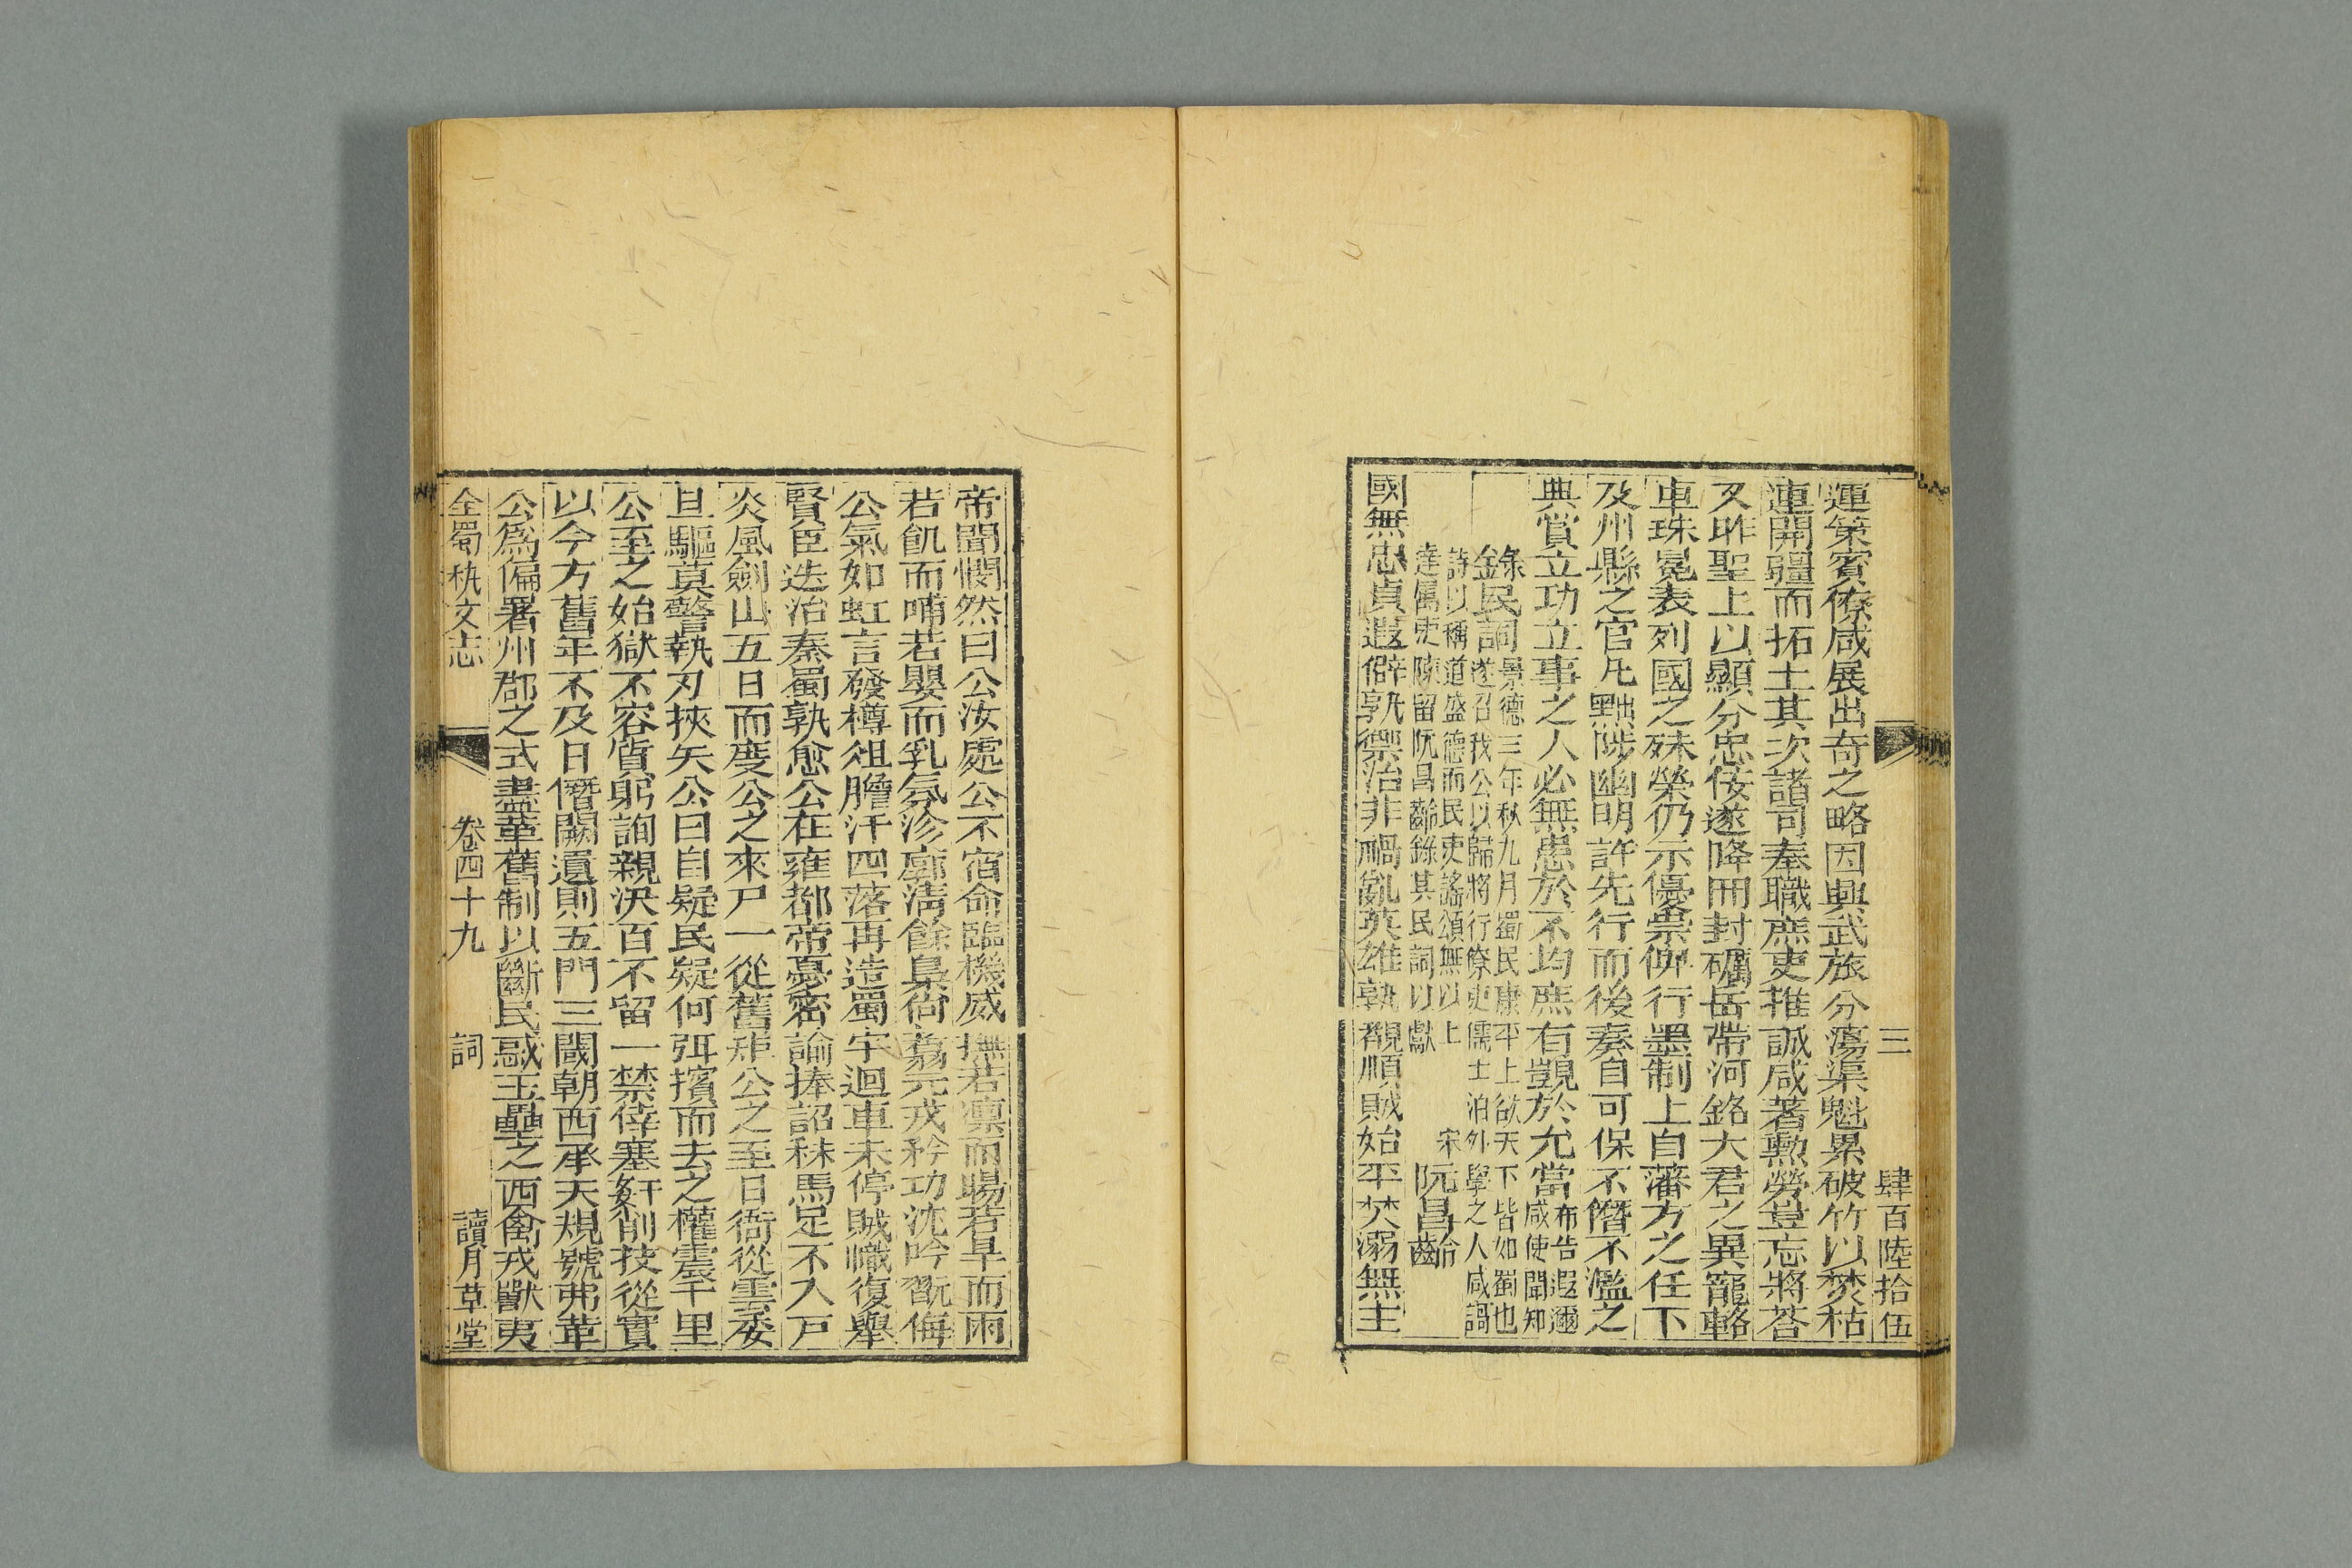 三　肆百陸拾伍
運策賓僚咸展出奇之略因興武旅分蕩渠魁累破竹以焚枯
連開疆而拓土其次諸司奉職庶吏推誠咸著勲勞豈忘將荅
又昨聖上以顯分忠佞遂降冊封礪岳帶河銘大君之異寵輅
車珠冕表列國之殊榮仍示優崇俾行墨制上自藩方之任下
及州縣之官凡黜陟幽明許先行而後奏自可保不僭不濫之
典賞立功立事之人必無患於不均庶有覬於允當布告遐邇
咸使聞知
錄民詞景德三年秋九月蜀民康平上欲天下皆如蜀也
遂召我公以歸將行僚吏儒士洎外學之人咸謌
詩以稱道盛德而民吏謠頌無以上
達屬吏陳留阮昌齡錄其民詞以獻
宋阮昌齡
國無忠貞遐僻孰禦治非禍亂英雄孰覩順賊始平焚溺無主
帝聞憫然曰公汝處公不宿命臨機威撫若凜而暘若旱而雨
若飢而哺若嬰而乳氛沴廓淸餘梟尙翥元戎矜功沈吟翫侮
公氣如虹言發樽俎膽汗四落再造蜀宇迴車未停賊幟復舉
賢臣迭治秦蜀孰愈公在雍都帝憂密諭捧詔秣馬足不入戸
炎風劍山五日而度公之來尸一從舊矩公之至日衙從雲委
且驅莫警執刃挾矢公曰自疑民疑何弭擯而去之權震千里
公至之始獄不容質躬詢親決百不留一禁倖塞姦削技從實
以今方舊年不及日僭闕遺則五門三閾朝西承天規號弗革
公爲偏署州郡之式盡革舊制以斷民惑玉壘之西禽戎獸夷
全蜀秇文志　卷四十九　詞　讀月草堂